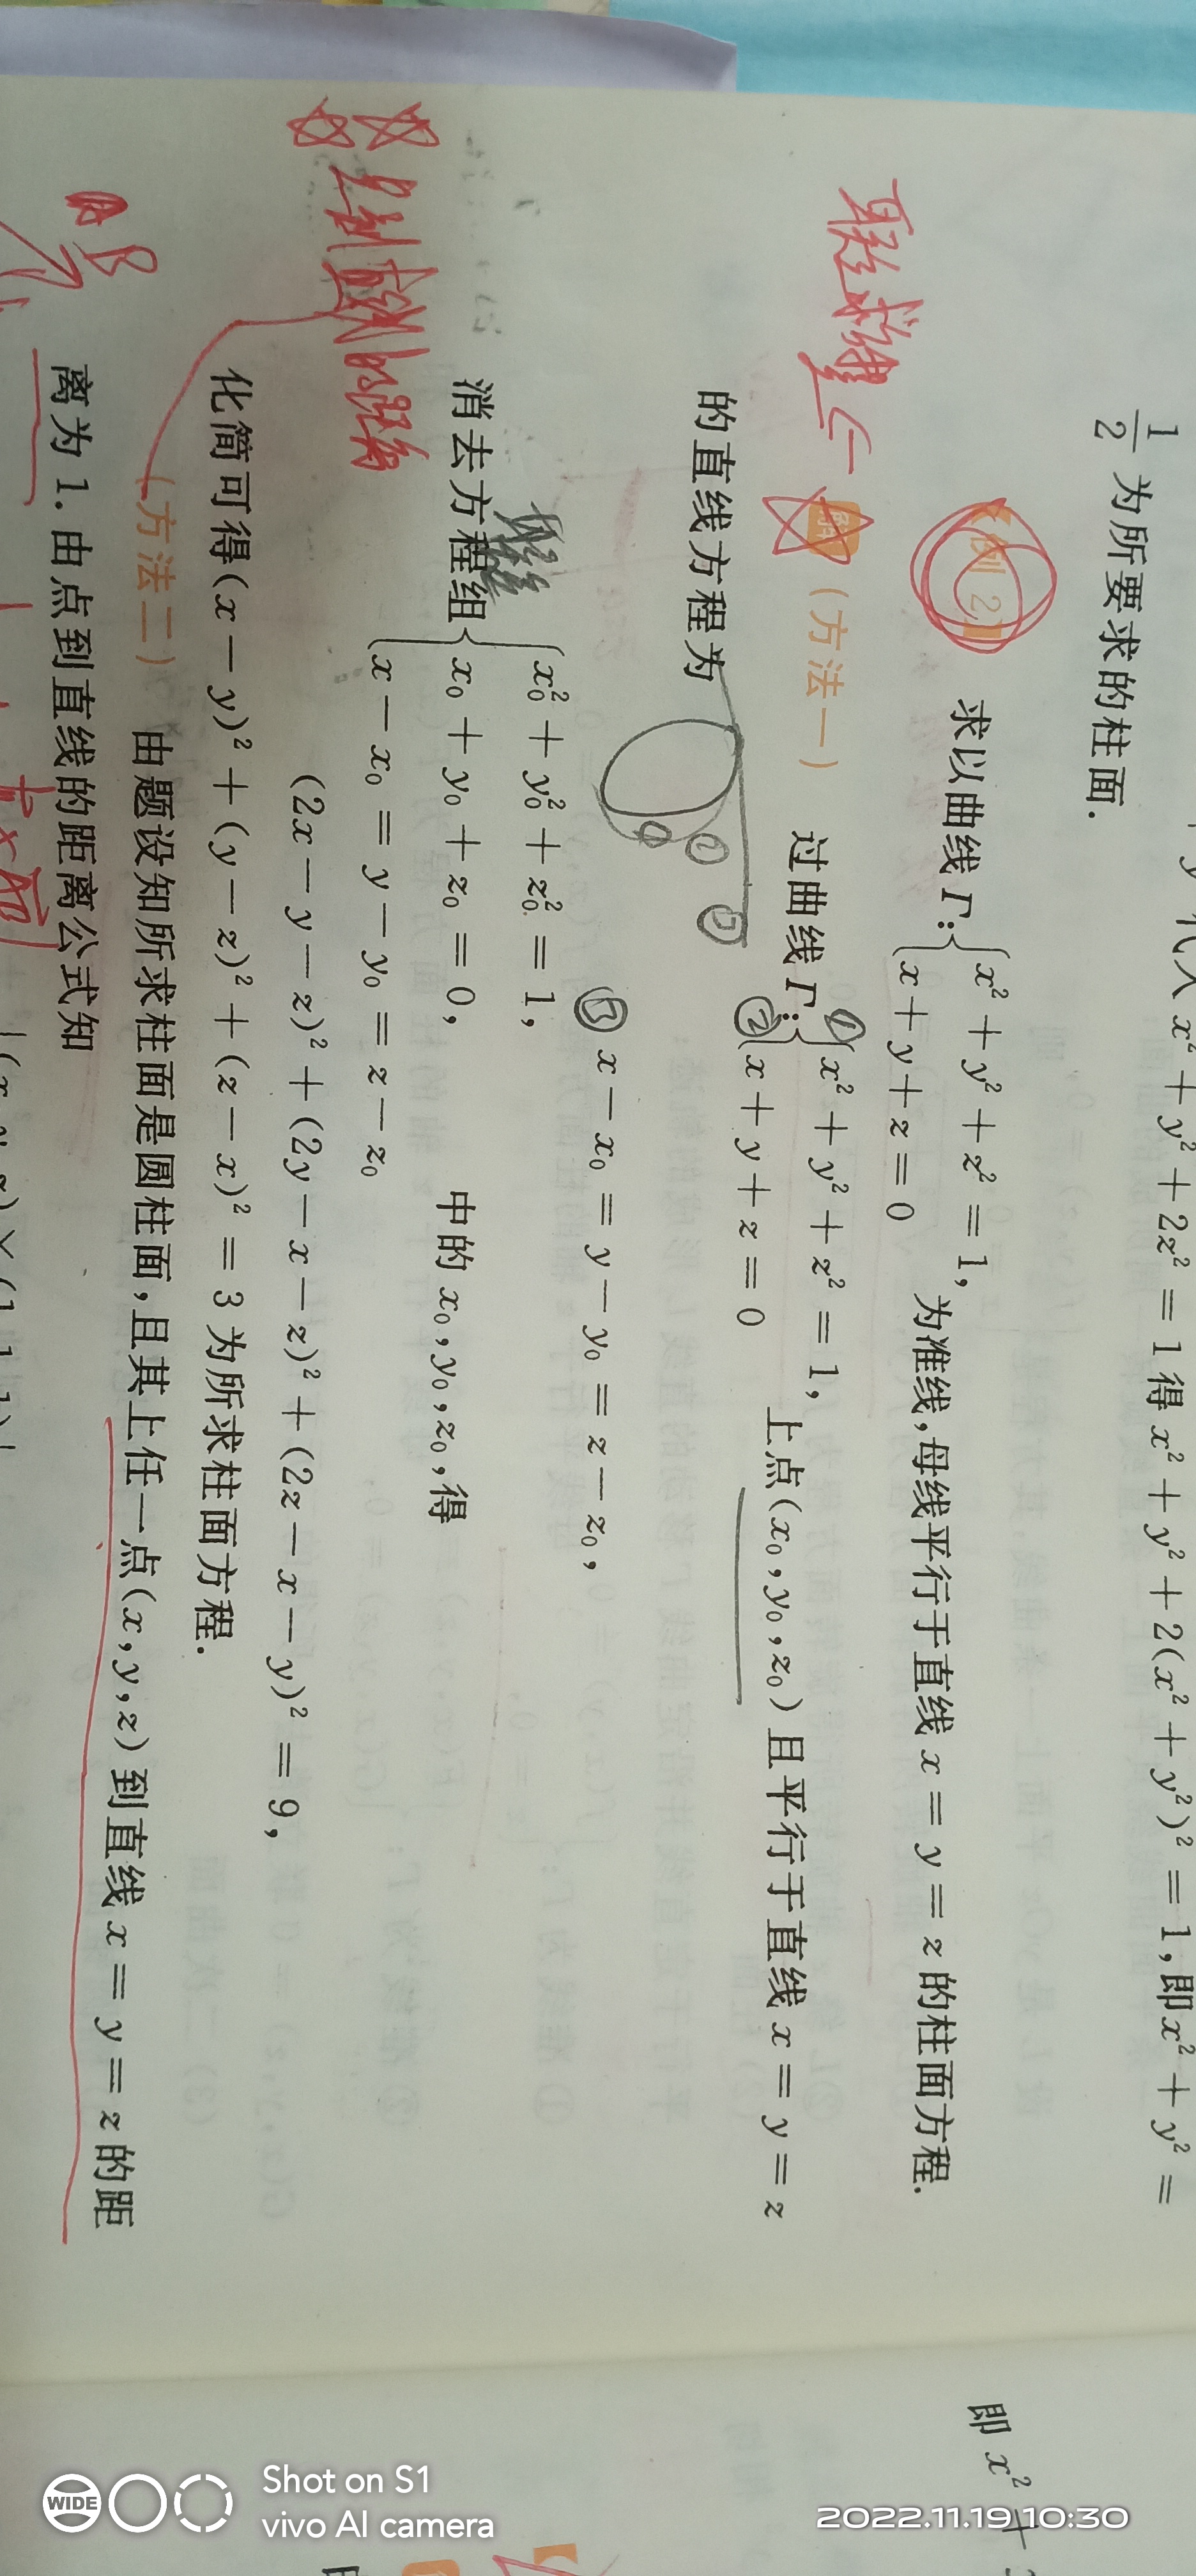 y 代入 x² + y² + 2z² = 1 得 x² + y² + 2(x² + y²)² = 1, 即 x² + y² =
1/2 为所要求的柱面.
例 2 求以曲线 Γ: { x² + y² + z² = 1, x + y + z = 0 为准线, 母线平行于直线 x = y = z 的柱面方程.
解 (方法一) 过曲线 Γ: { ① x² + y² + z² = 1, ② x + y + z = 0 上点 (x₀, y₀, z₀) 且平行于直线 x = y = z
的直线方程为
① ② ③
③ x − x₀ = y − y₀ = z − z₀,
消去方程组 { x₀² + y₀² + z₀² = 1, x₀ + y₀ + z₀ = 0, x − x₀ = y − y₀ = z − z₀ 中的 x₀, y₀, z₀, 得
(2x − y − z)² + (2y − x − z)² + (2z − x − y)² = 9,
化简可得 (x − y)² + (y − z)² + (z − x)² = 3 为所求柱面方程.
(方法二) 由题设知所求柱面是圆柱面, 且其上任一点 (x, y, z) 到直线 x = y = z 的距
离为 1. 由点到直线的距离公式知
即 x² +
WIDE
Shot on S1
vivo AI camera
2022.11.19 10:30